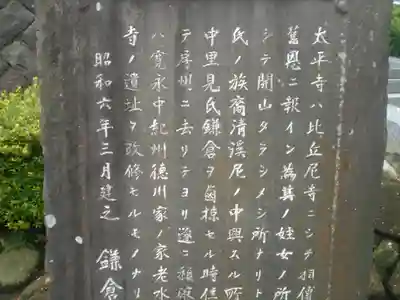 太平寺ハ比丘尼寺ニシテ相傳
舊恩ニ報イン為其ノ姪女ノ所
シテ開山タラシメシ所ナリト
氏ノ族裔清渓尼ノ中興スル所
中里見氏鎌倉ヲ鹵掠セル時住
テ房州ニ去リテヨリ遂ニ頽破
ハ寛永中紀州徳川家ノ家老水
寺ノ遺址ヲ改修セルモノナリ
昭和六年三月建之 鎌倉